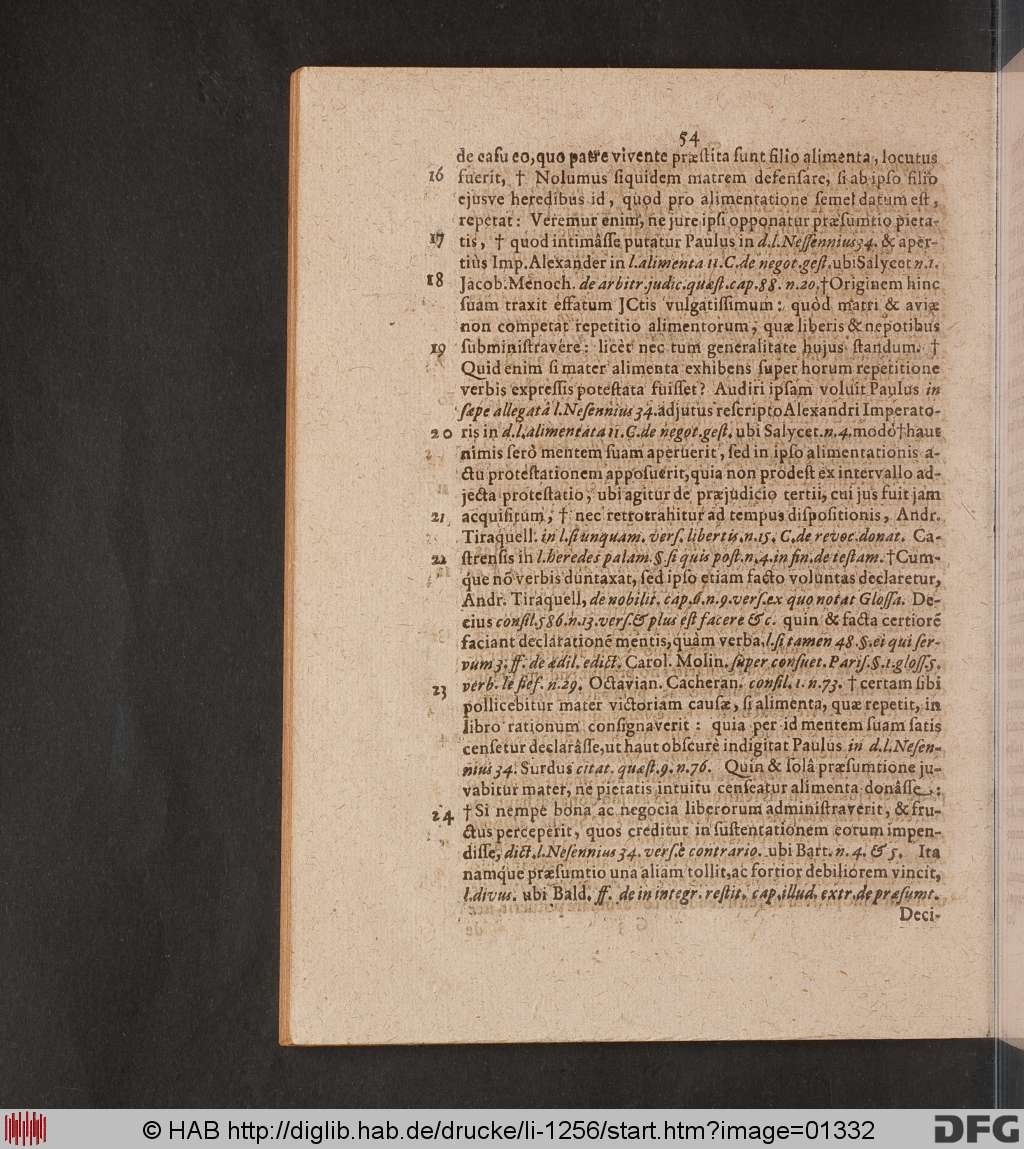 54
de casu eo, quo patre vivente præstita sunt filio alimenta, locutus
16 fuerit, † Nolumus siquidem matrem defensare, si ab ipso filio
ejusve heredibus id, quod pro alimentatione semel datum est,
repetat: Veremur enim, ne jure ipsi opponatur præsumtio pieta-
17 tis, † quod intimâsse putatur Paulus in d.l. Nessennius 34. & aper-
tiùs Imp. Alexander in l. alimenta 11. C. de negot. gest. ubi Salycet n. 1.
18 Jacob. Menoch. de arbitr. judic. quæst. cap. 88. n. 20. † Originem hinc
suam traxit effatum JCtis vulgatissimum: quòd matri & aviæ
non competat repetitio alimentorum, quæ liberis & nepotibus
19 subministravere: licèt nec tum generalitate hujus standum. †
Quid enim si mater alimenta exhibens super horum repetitione
verbis expressis potestata fuisset? Audiri ipsam voluit Paulus in
sæpe allegatâ l. Nesennius 34. adjutus rescripto Alexandri Imperato-
20 ris in d.l. alimentata 11. C. de negot. gest. ubi Salycet. n. 4. modò † haut
nimis serò mentem suam aperuerit, sed in ipso alimentationis a-
ctu protestationem apposuerit, quia non prodest ex intervallo ad-
jecta protestatio, ubi agitur de præjudicio tertii, cui jus fuit jam
21 acquisitum, † nec retrotrahitur ad tempus dispositionis, Andr.
Tiraquell. in l. si unquam. vers. libertis. n. 15. C. de revoc. donat. Ca-
22 strensis in l. heredes palam. § si quis post. n. 4. in fin. de testam. † Cum-
que nō verbis duntaxat, sed ipso etiam facto voluntas declaretur,
Andr. Tiraquell, de nobilit. cap. 6. n. 9. vers. ex quo notat Glossa. De-
cius consil. 586. n. 13. vers. & plus est facere &c. quin & facta certiorē
faciant declarationē mentis, quàm verba, l. si tamen 48. §. ei qui ser-
vum 3. ff. de ædil. edict. Carol. Molin. super consuet. Paris. §. 1. gloss. 5.
23 verb. le fief. n. 29. Octavian. Cacheran. consil. 1. n. 73. † certam sibi
pollicebitur mater victoriam causæ, si alimenta, quæ repetit, in
libro rationum consignaverit: quia per id mentem suam satis
censetur declarâsse, ut haut obscurè indigitat Paulus in d.l. Nesen-
nius 34. Surdus citat. quæst. 9. n. 76. Quin & solâ præsumtione ju-
vabitur mater, ne pietatis intuitu censeatur alimenta donâsse:
24 † Si nempe bona ac negocia liberorum administraverit, & fru-
ctus perceperit, quos creditur in sustentationem eorum impen-
disse, dict. l. Nesennius 34. vers. è contrario. ubi Bart. n. 4. & 5. Ita
namque præsumtio una aliam tollit, ac fortior debiliorem vincit,
l. divus. ubi Bald. ff. de in integr. restit. cap. illud. extr. de præsumt.
Deci-
© HAB http://diglib.hab.de/drucke/li-1256/start.htm?image=01332
DFG